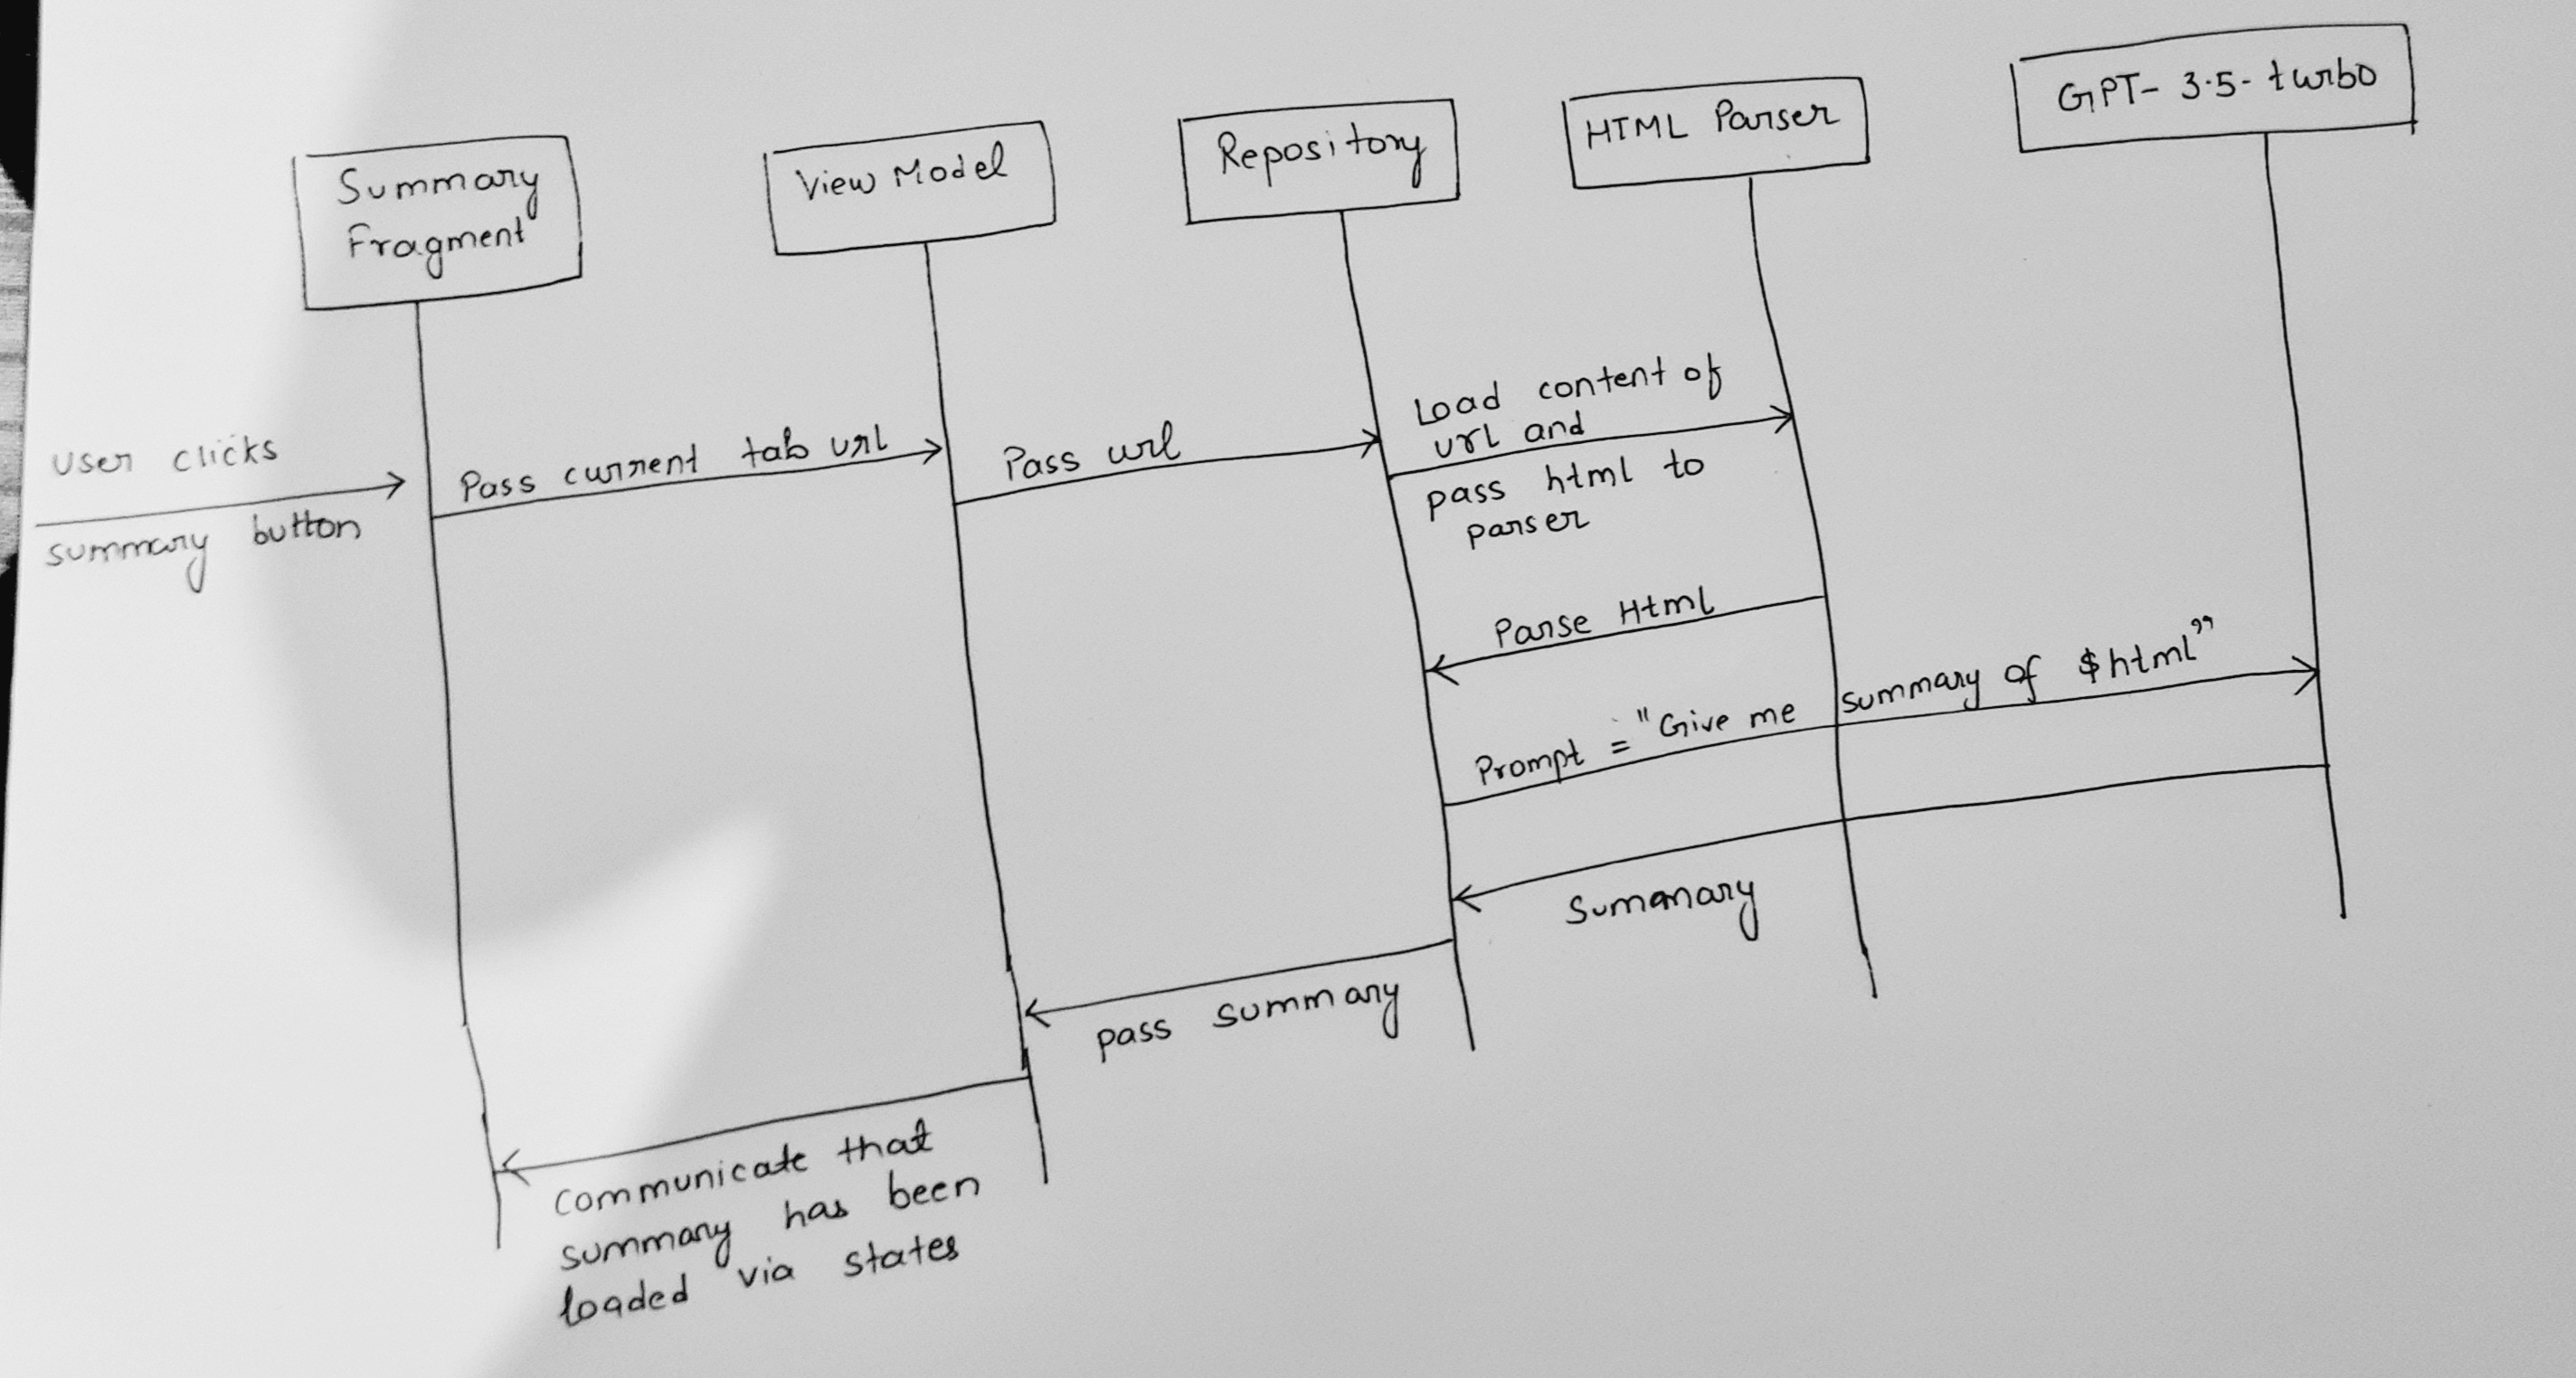 Summary
Fragment
View Model
Repository
HTML Parser
GPT-3.5-turbo
User clicks
summary button
Pass current tab url
Pass url
Load content of
url and
pass html to
parser
Parse Html
Prompt = "Give me summary of $html"
Summary
pass summary
Communicate that
summary has been
loaded via states